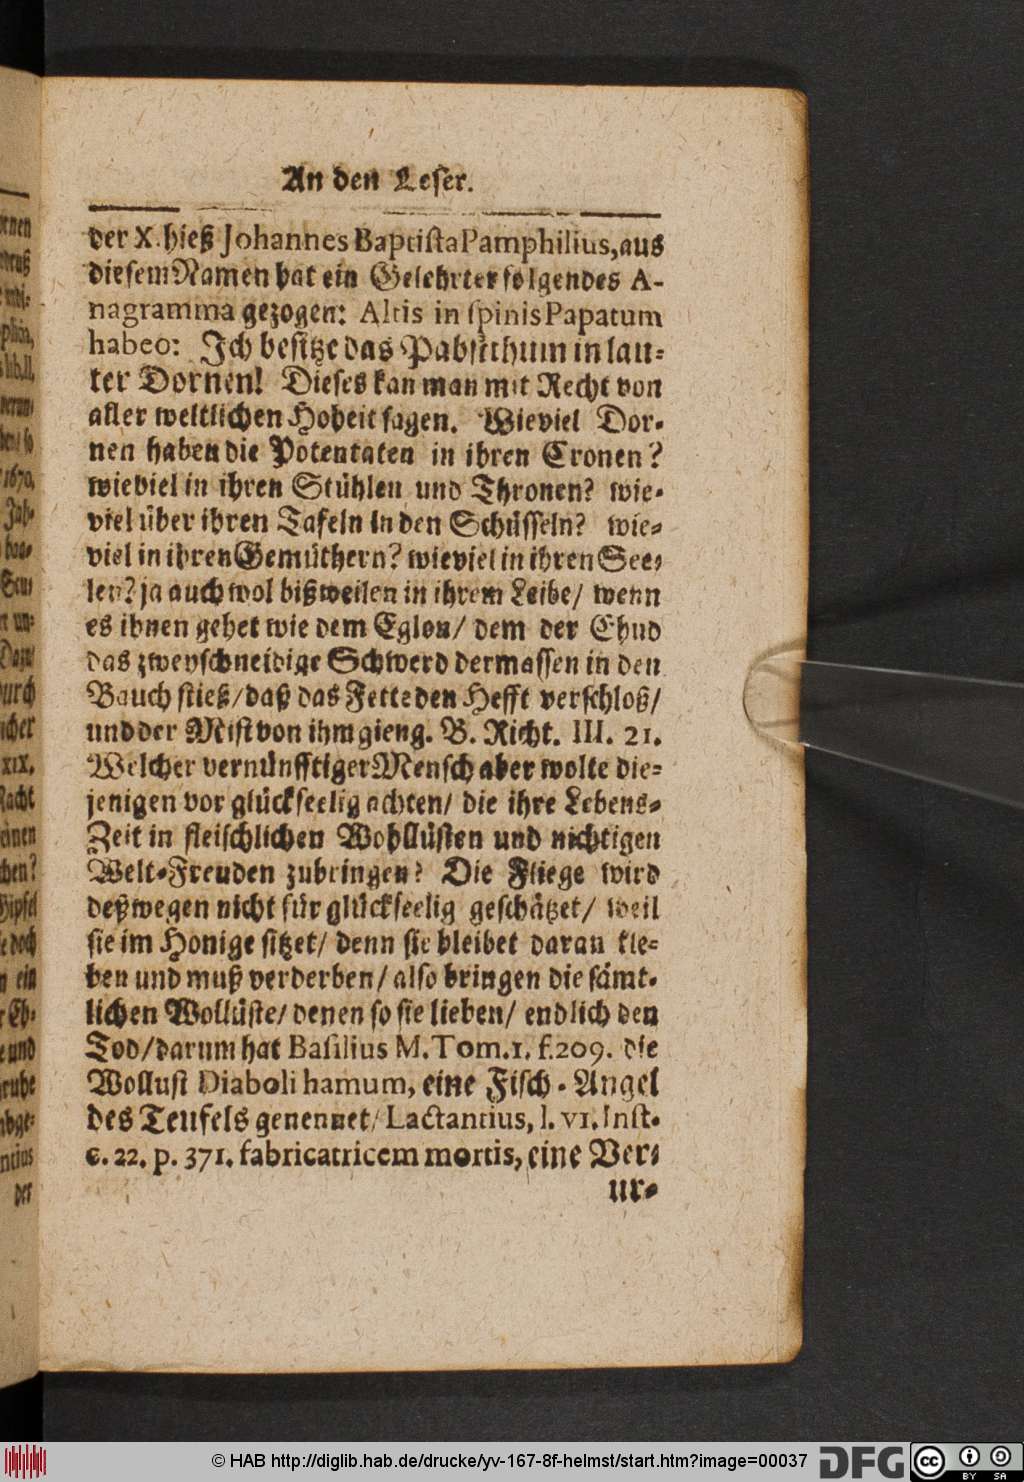 An den Leser.
der X. hieß Johannes Baptista Pamphilius, aus
diesem Namen hat ein Gelehrter folgendes A-
nagramma gezogen: Altis in spinis Papatum
habeo: Ich besitze das Pabstthum in lau-
ter Dornen! Dieses kan man mit Recht von
aller weltlichen Hoheit sagen. Wieviel Dor-
nen haben die Potentaten in ihren Cronen?
wieviel in ihren Stühlen und Thronen? wie-
viel über ihren Tafeln in den Schüsseln? wie-
viel in ihren Gemüthern? wieviel in ihren See-
len? ja auch wol bißweilen in ihrem Leibe/ wenn
es ihnen gehet wie dem Eglon/ dem der Ehud
das zweyschneidige Schwerd dermassen in den
Bauch stieß/ daß das Fette den Hefft verschloß/
und der Mist von ihm gieng. B. Richt. III. 21.
Welcher vernünfftiger Mensch aber wolte die-
jenigen vor glückseelig achten/ die ihre Lebens-
Zeit in fleischlichen Wohllüsten und nichtigen
Welt-Freuden zubringen? Die Fliege wird
deßwegen nicht für glückseelig geschätzet/ weil
sie im Honige sitzet/ denn sie bleibet daran kle-
ben und muß verderben/ also bringen die sämt-
lichen Wollüste/ denen so sie lieben/ endlich den
Tod/ darum hat Basilius M. Tom. 1. f. 209. die
Wollust Diaboli hamum, eine Fisch-Angel
des Teufels genennet/ Lactantius, l. VI. Inst.
c. 22. p. 371. fabricatricem mortis, eine Ver-
ur-
1670.
XIX.
Nacht
chen?
Gipfel
ein
und
der
© HAB http://diglib.hab.de/drucke/yv-167-8f-helmst/start.htm?image=00037
DFG
cc
BY SA